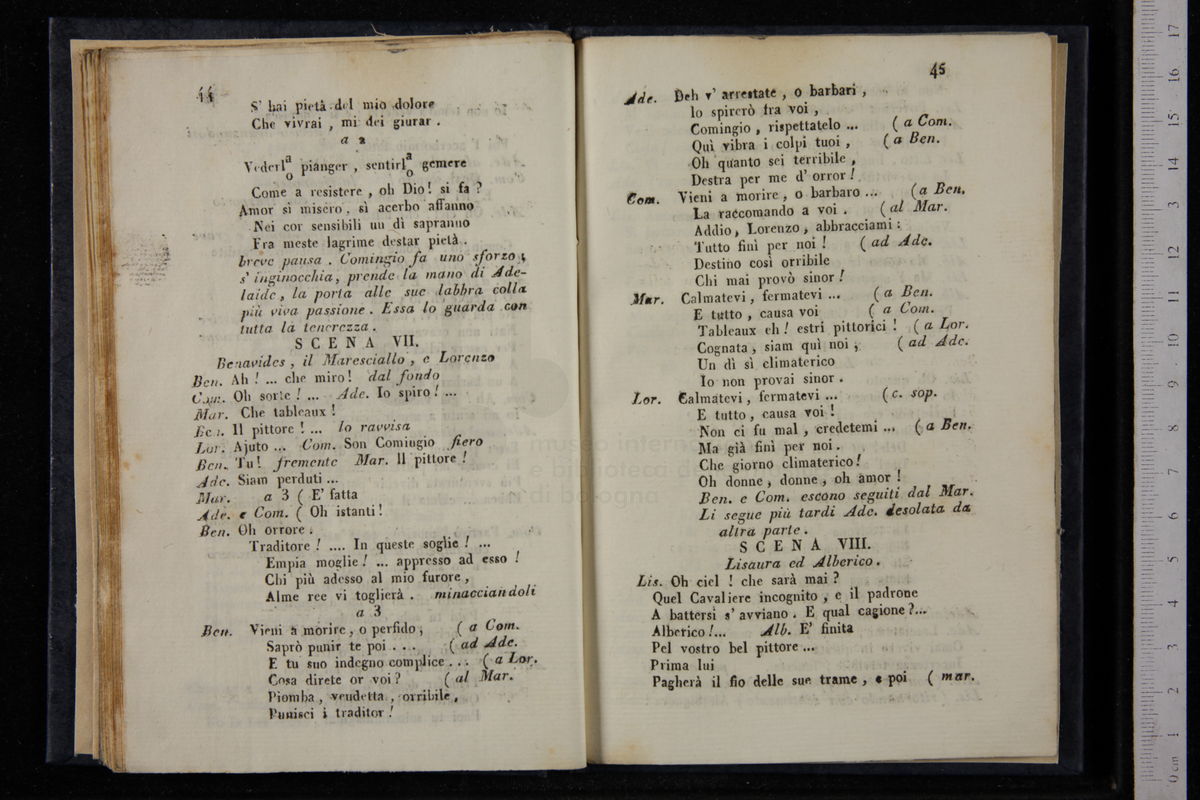 44
S' hai pietà del mio dolore
Che vivrai , mi dei giurar .
a 2
Vederl a/o pianger , sentirl a/o gemere
Come a resistere , oh Dio ! si fa ?
Amor sì misero , sì acerbo affanno
Nei cor sensibili un dì sapranno
Fra meste lagrime destar pietà .
breve pausa . Comingio fa uno sforzo ,
s' inginocchia , prende la mano di Ade-
laide , la porta alle sue labbra colla
più viva passione . Essa lo guarda con
tutta la tenerezza .
SCENA VII.
Benavides , il Maresciallo , e Lorenzo
Ben. Ah ! ... che miro ! dal fondo
Com. Oh sorte ! ... Ade. Io spiro ! ...
Mar. Che tableaux !
Ben. Il pittore ! ... lo ravvisa
Lor. Ajuto ... Com. Son Comingio fiero
Ben. Tu ! fremente Mar. Il pittore !
Ade. Siam perduti ...
Mar. a 3 ( E' fatta
Ade. e Com. ( Oh istanti !
Ben. Oh orrore .
Traditore ! .... In queste soglie ! ...
Empia moglie ! ... appresso ad esso !
Chi più adesso al mio furore ,
Alme ree vi toglierà . minacciandoli
a 3
Ben. Vieni a morire , o perfido , ( a Com.
Saprò punir te poi . . . ( ad Ade.
E tu suo indegno complice . . . ( a Lor.
Cosa direte or voi ? ( al Mar.
Piomba , vendetta , orribile ,
Punisci i traditor !
45
Ade. Deh v' arrestate , o barbari ,
Io spirerò fra voi ,
Comingio , rispettatelo ... ( a Com.
Quì vibra i colpi tuoi , ( a Ben.
Oh quanto sei terribile ,
Destra per me d' orror !
Com. Vieni a morire , o barbaro ... ( a Ben.
La raccomando a voi . ( al Mar.
Addio , Lorenzo , abbracciami :
Tutto finì per noi ! ( ad Ade.
Destino così orribile
Chi mai provò sinor !
Mar. Calmatevi , fermatevi ... ( a Ben.
E tutto , causa voi ( a Com.
Tableaux eh ! estri pittorici ! ( a Lor.
Cognata , siam quì noi ; ( ad Ade.
Un dì sì climaterico
Io non provai sinor .
Lor. Calmatevi , fermatevi ... ( c. sop.
E tutto , causa voi !
Non ci fu mal , credetemi ... ( a Ben.
Ma già finì per noi .
Che giorno climaterico !
Oh donne , donne , oh amor !
Ben. e Com. escono seguiti dal Mar.
Li segue più tardi Ade. desolata da
altra parte .
SCENA VIII.
Lisaura ed Alberico .
Lis. Oh ciel ! che sarà mai ?
Quel Cavaliere incognito , e il padrone
A battersi s' avviano . E qual cagione ?...
Alberico !... Alb. E' finita
Pel vostro bel pittore ...
Prima lui
Pagherà il fio delle sue trame , e poi ( mar.
museo
e biblioteca
di bologna
0 cm 1 2 3 4 5 6 7 8 9 10 11 12 13 14 15 16 17